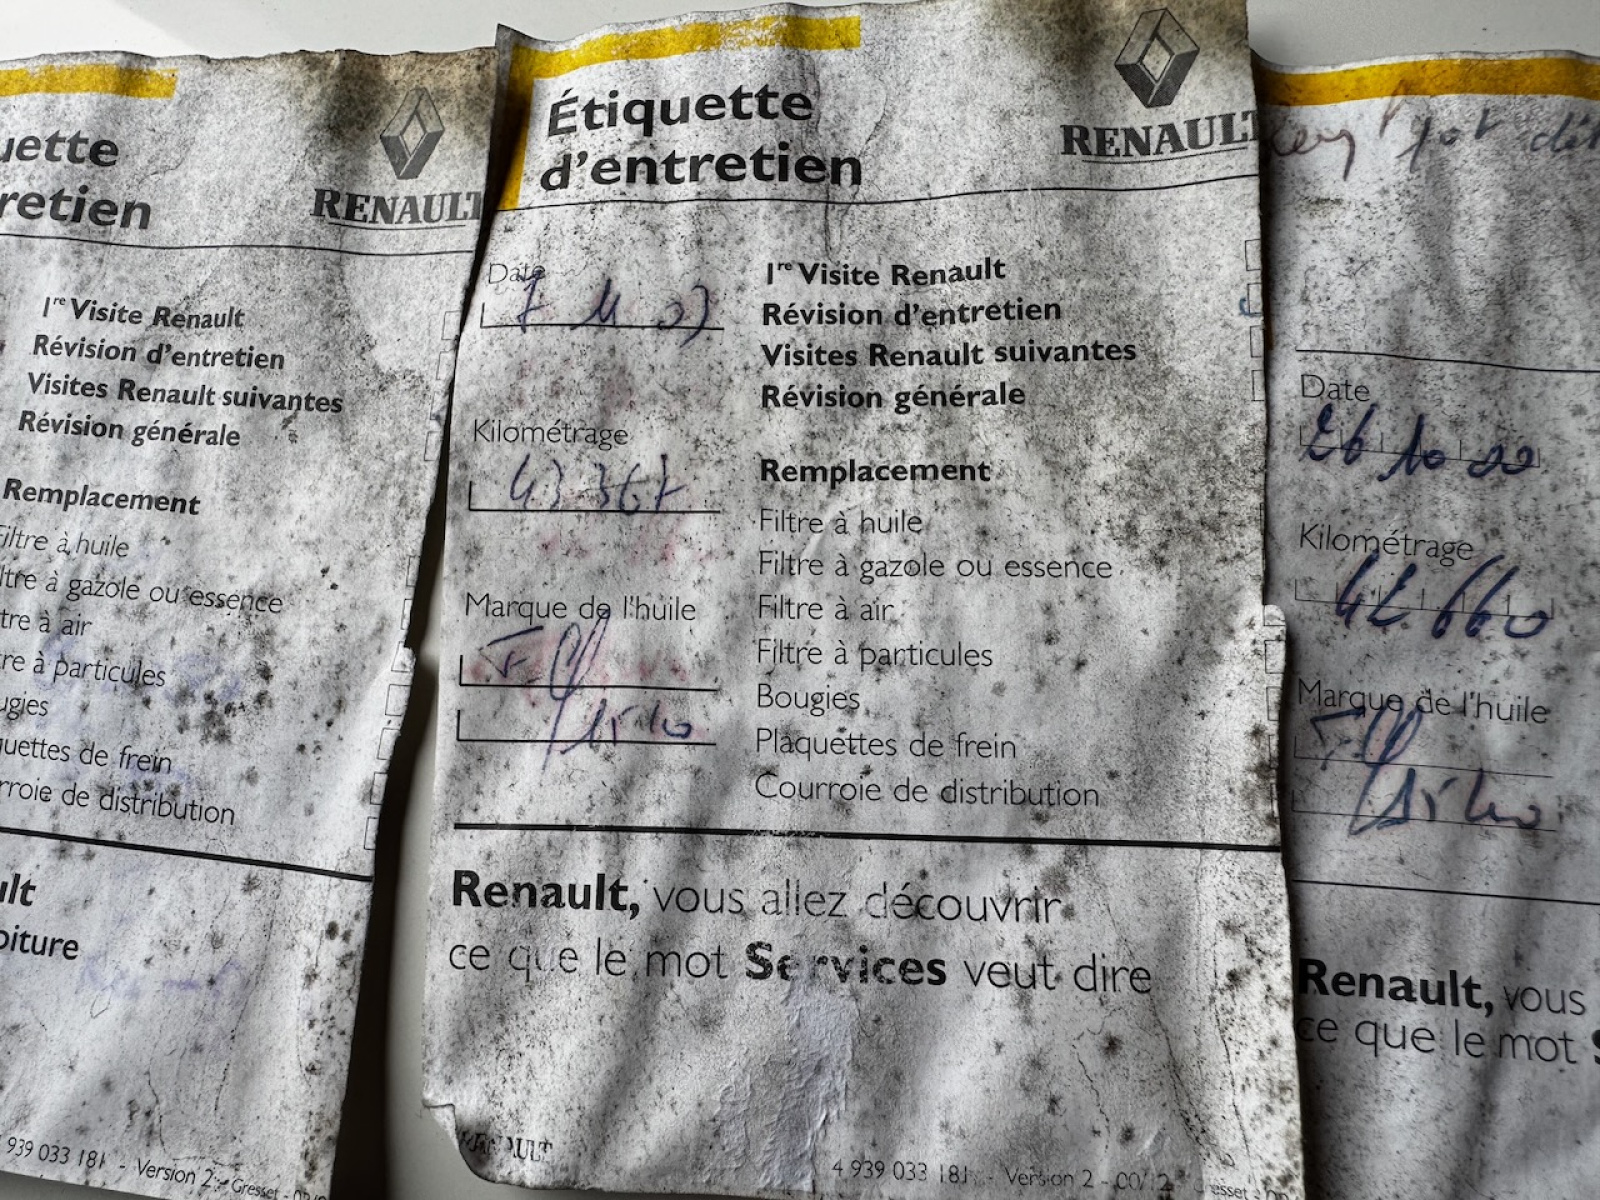 uette
retien
RENAULT
1re Visite Renault
Révision d'entretien
Visites Renault suivantes
Révision générale
Remplacement
Filtre à huile
ltre à gazole ou essence
tre à air
re à particules
ugies
uettes de frein
rroie de distribution
ult
oiture
939 033 181 - Version 2 - Gresset -
Étiquette
d'entretien
RENAULT
Date
7 11 03
Kilométrage
43 367
Marque de l'huile
Elf
15 40
1re Visite Renault
Révision d'entretien
Visites Renault suivantes
Révision générale
Remplacement
Filtre à huile
Filtre à gazole ou essence
Filtre à air
Filtre à particules
Bougies
Plaquettes de frein
Courroie de distribution
Renault, vous allez découvrir
ce que le mot Services veut dire
RENAULT
4 939 033 181 - Version 2 -
Date
26 10 00
Kilométrage
42 660
Marque de l'huile
Elf
15 40
Renault, vous
ce que le mot S